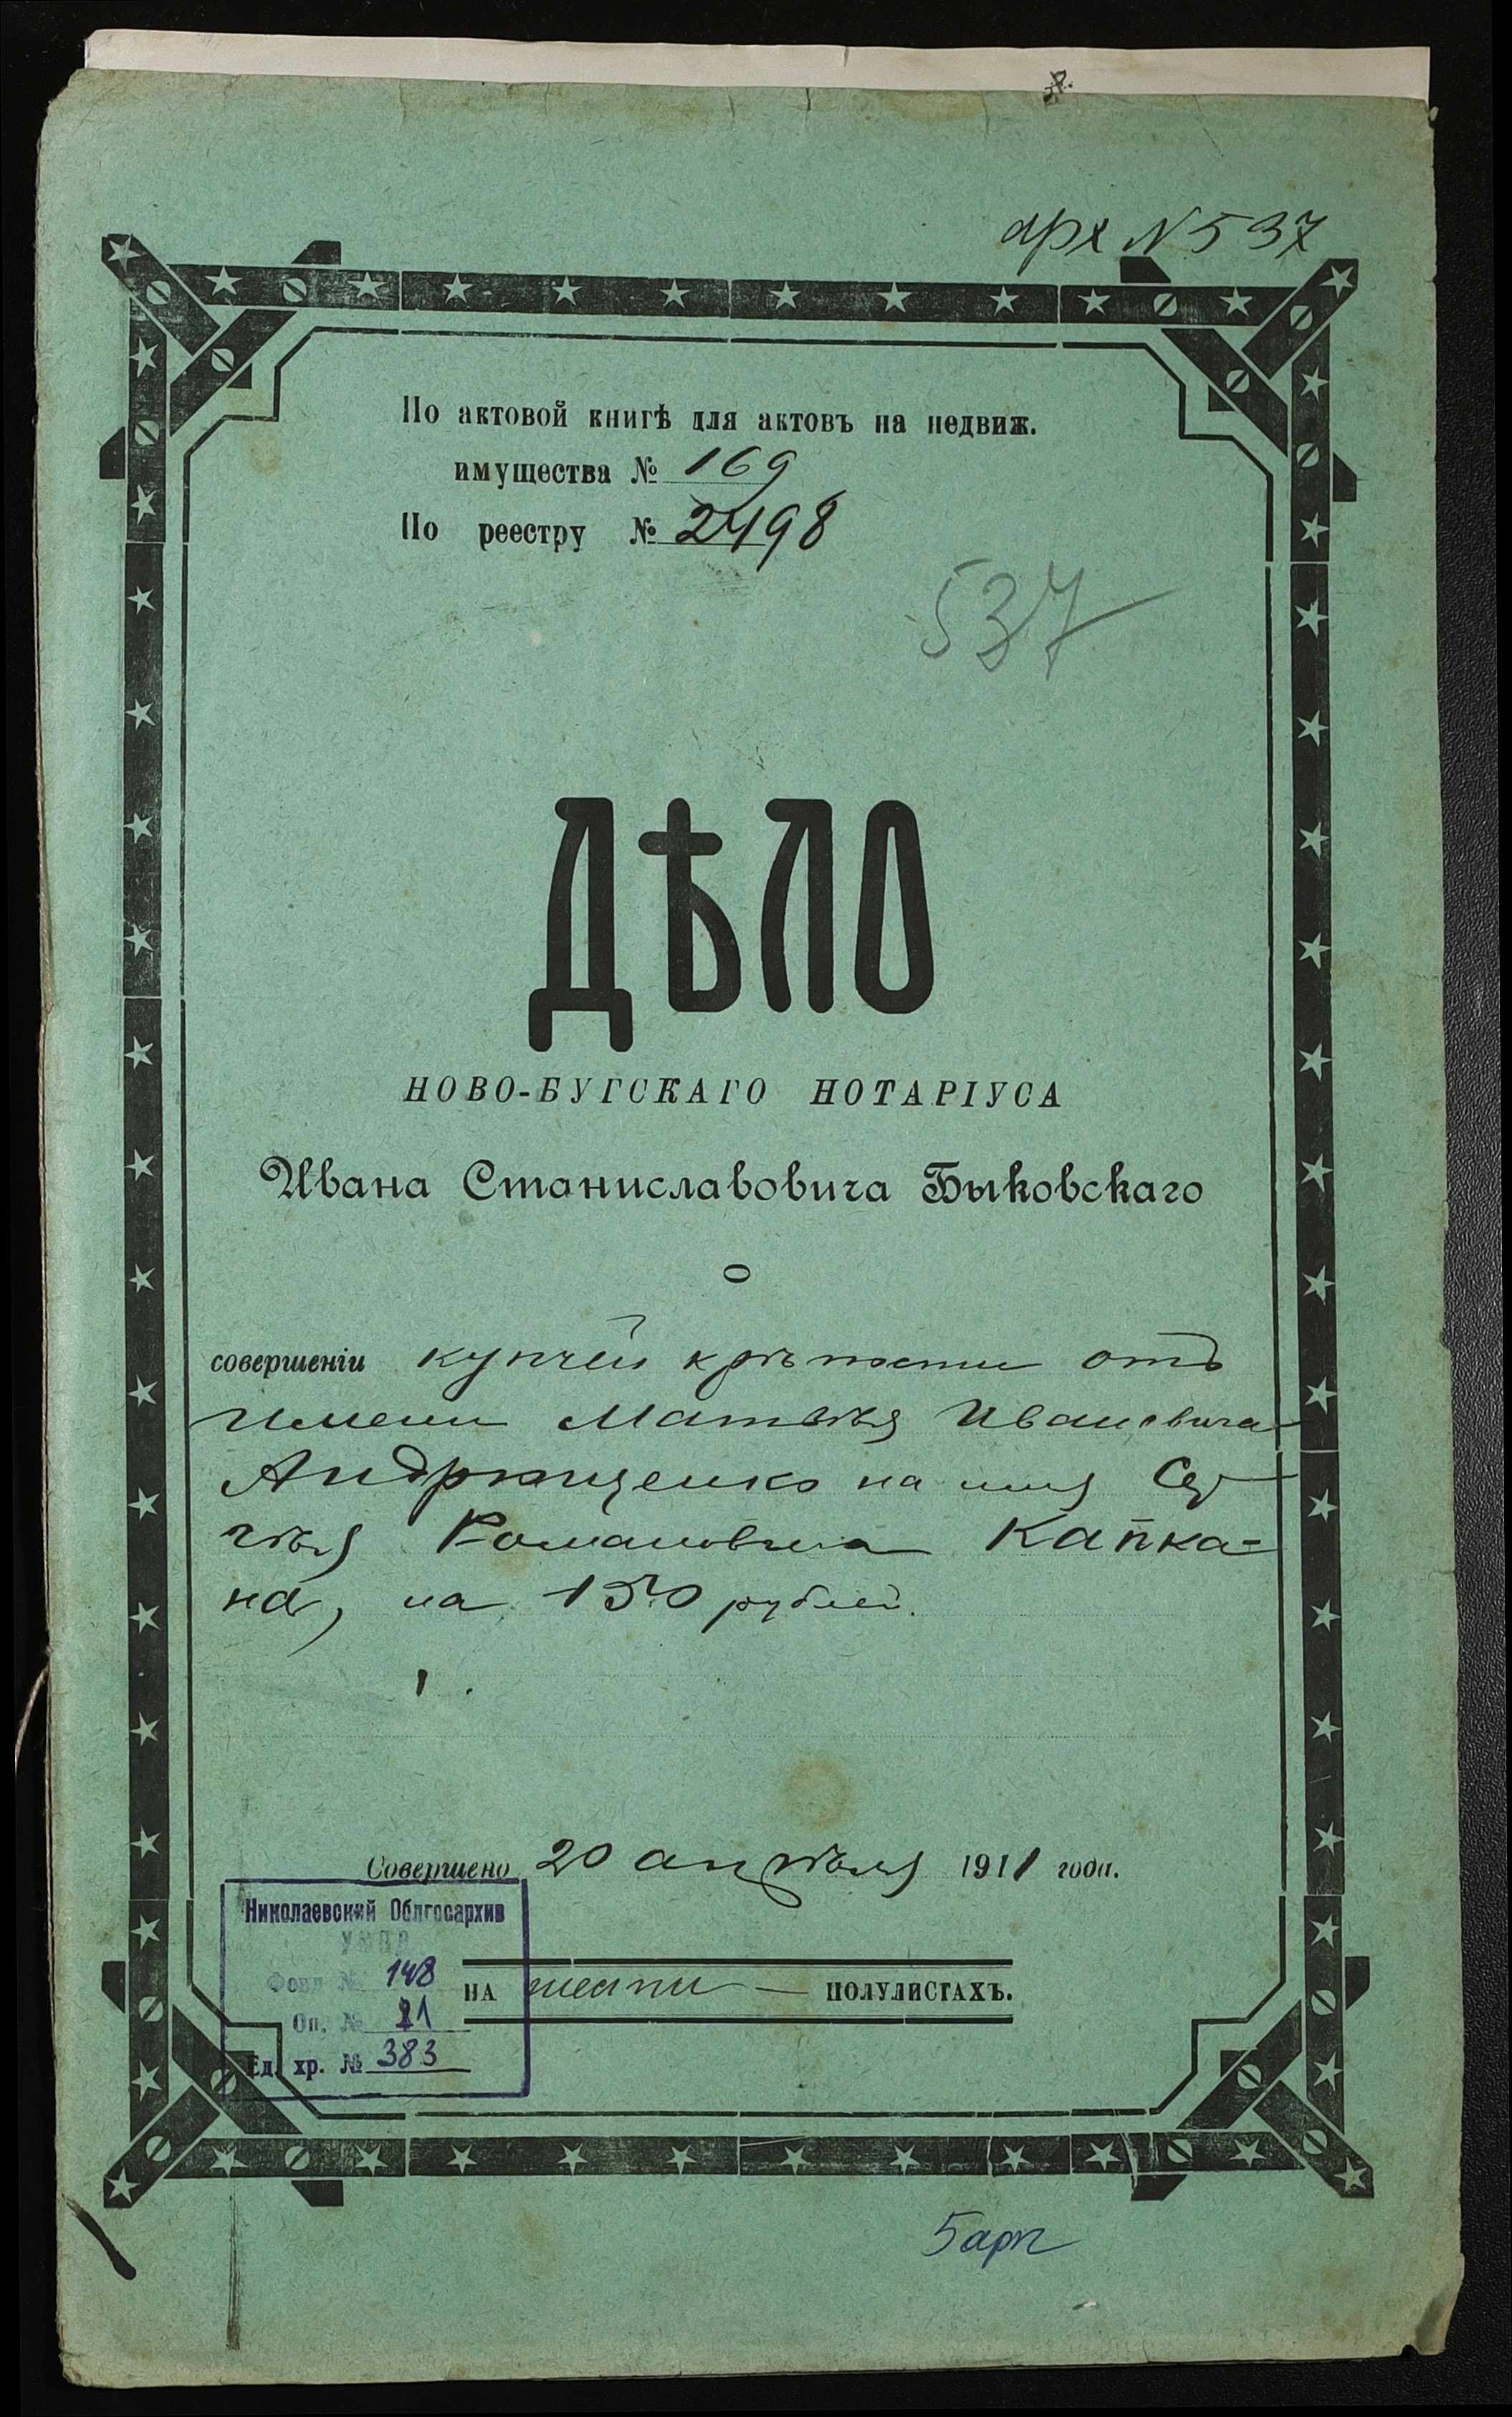 арх N 537
По актовой книгѣ для актовъ на недвиж.
имущества № 169
По реестру № 2498
537
ДѢЛО
НОВО-БУГСКАГО НОТАРІУСА
Ивана Станиславовича Быковскаго
о
совершеніи купчей крѣпости отъ
имени Матвѣя Ивановича
Андрющенко на имя Сер-
гѣя Романовича Капка=
на, на 150 рублей.
Совершено 20 апрѣля 1911 года.
Николаевский Облгосархив
Фонд № 148
НА шести — ПОЛУЛИСТАХЪ.
Оп. № 21
Ед. хр. № 383
5 арк